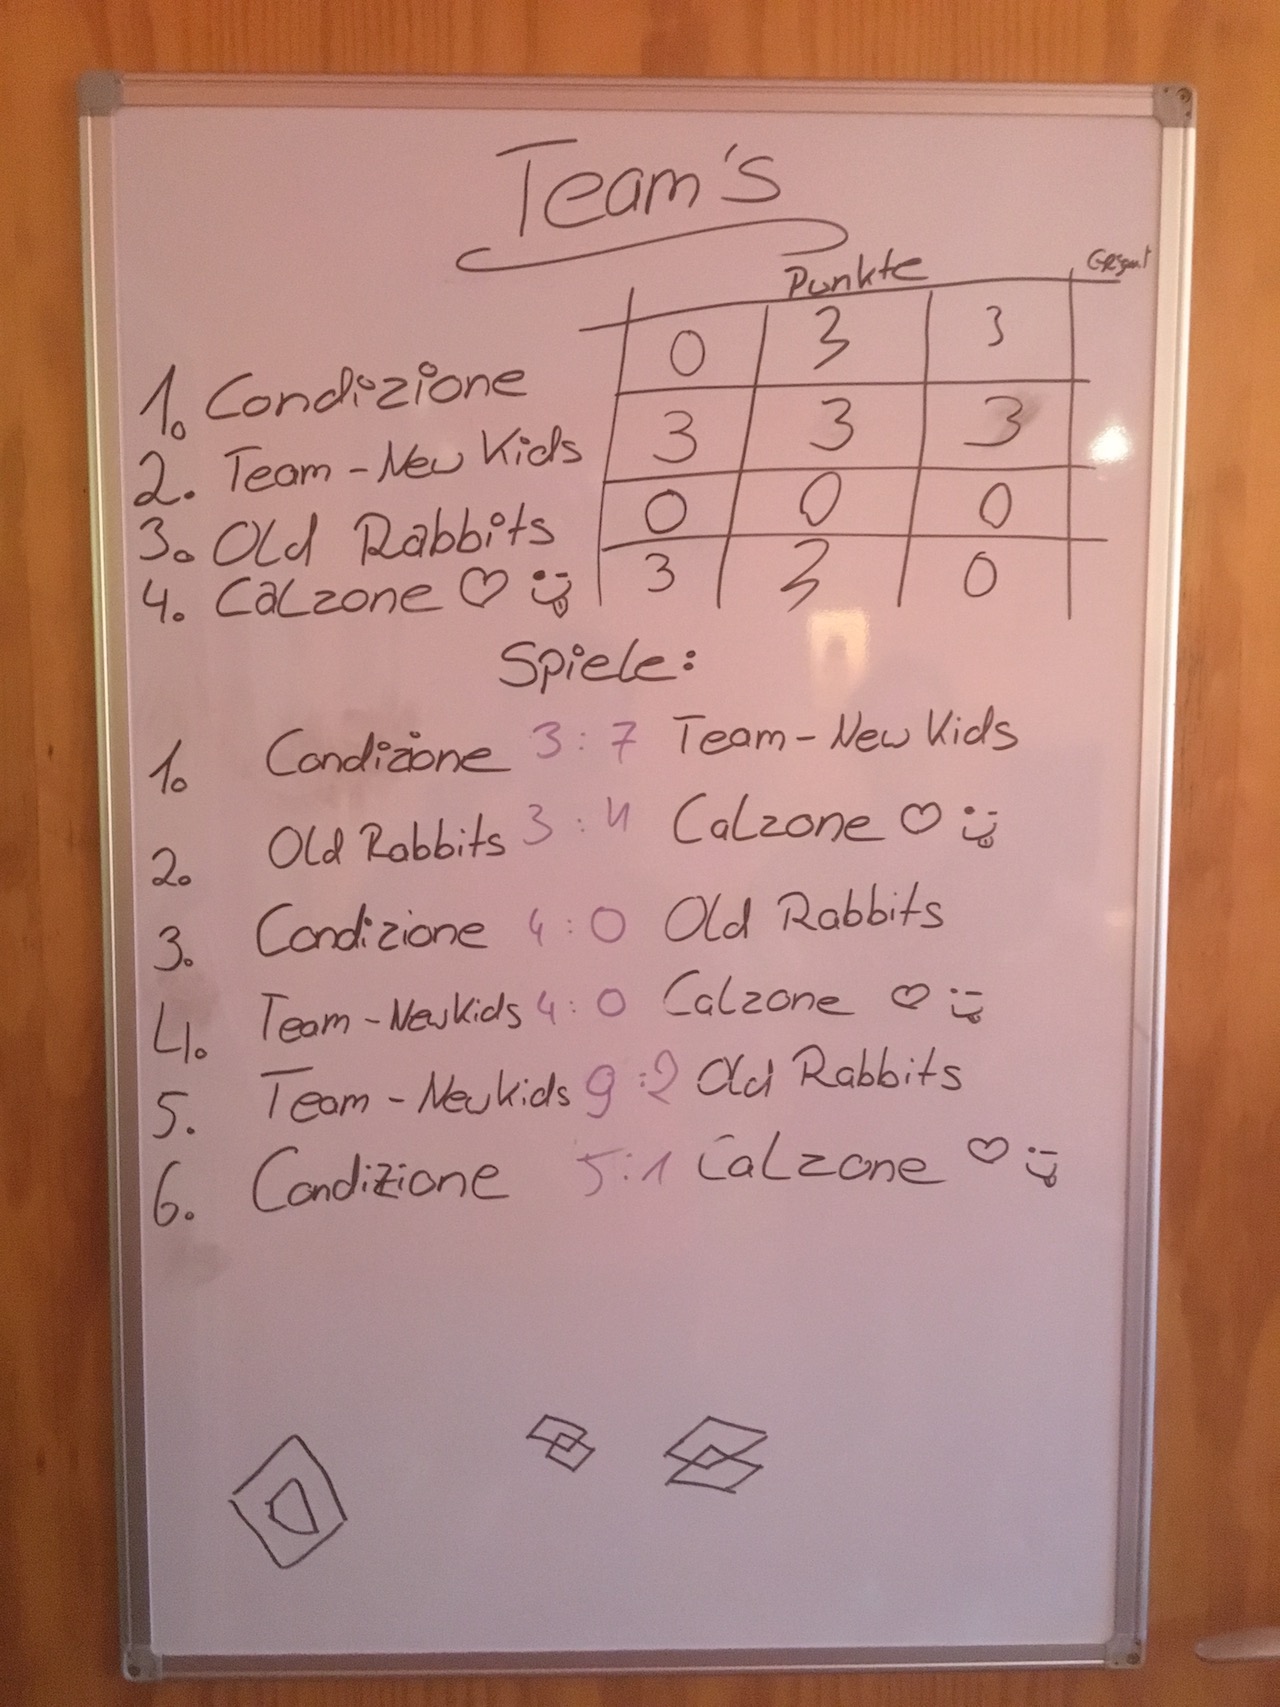 Team's
Punkte
1. Condizione 0 3 3
2. Team-New Kids 3 3 3
3. Old Rabbits 0 0 0
4. Calzone ♡ 3 3 0
Spiele:
1. Condizione 3:7 Team-New Kids
2. Old Rabbits 3:4 Calzone ♡
3. Condizione 4:0 Old Rabbits
4. Team-New Kids 4:0 Calzone ♡
5. Team-New Kids 9:2 Old Rabbits
6. Condizione 5:1 Calzone ♡